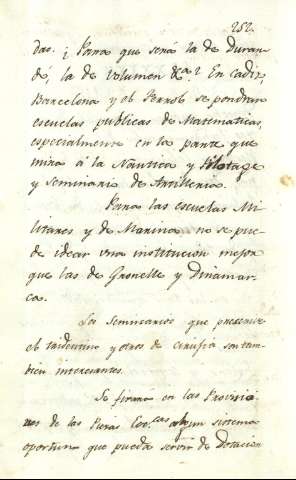 252.
das. ¿Para que será la de Duran-
dó, la de volumen &c.a? En Cadiz,
Barcelona y el Ferrol se pondran
escuelas publicas de Matematicas,
especialmente en la parte que
mira á la Nautica y Pilotage
y seminario de Artilleria.
Para las escuelas Mi-
litares y de Marina no se pue-
de idear una institucion mejor
que las de Grenelle y Dinamar-
ca.
Los Seminarios que previene
el tridentino y otros de cirugia son tam-
bien interesantes.
Se fixará en las Provincias
de las Rentas algun sistema
oportuno que pueda servir de Dotacion